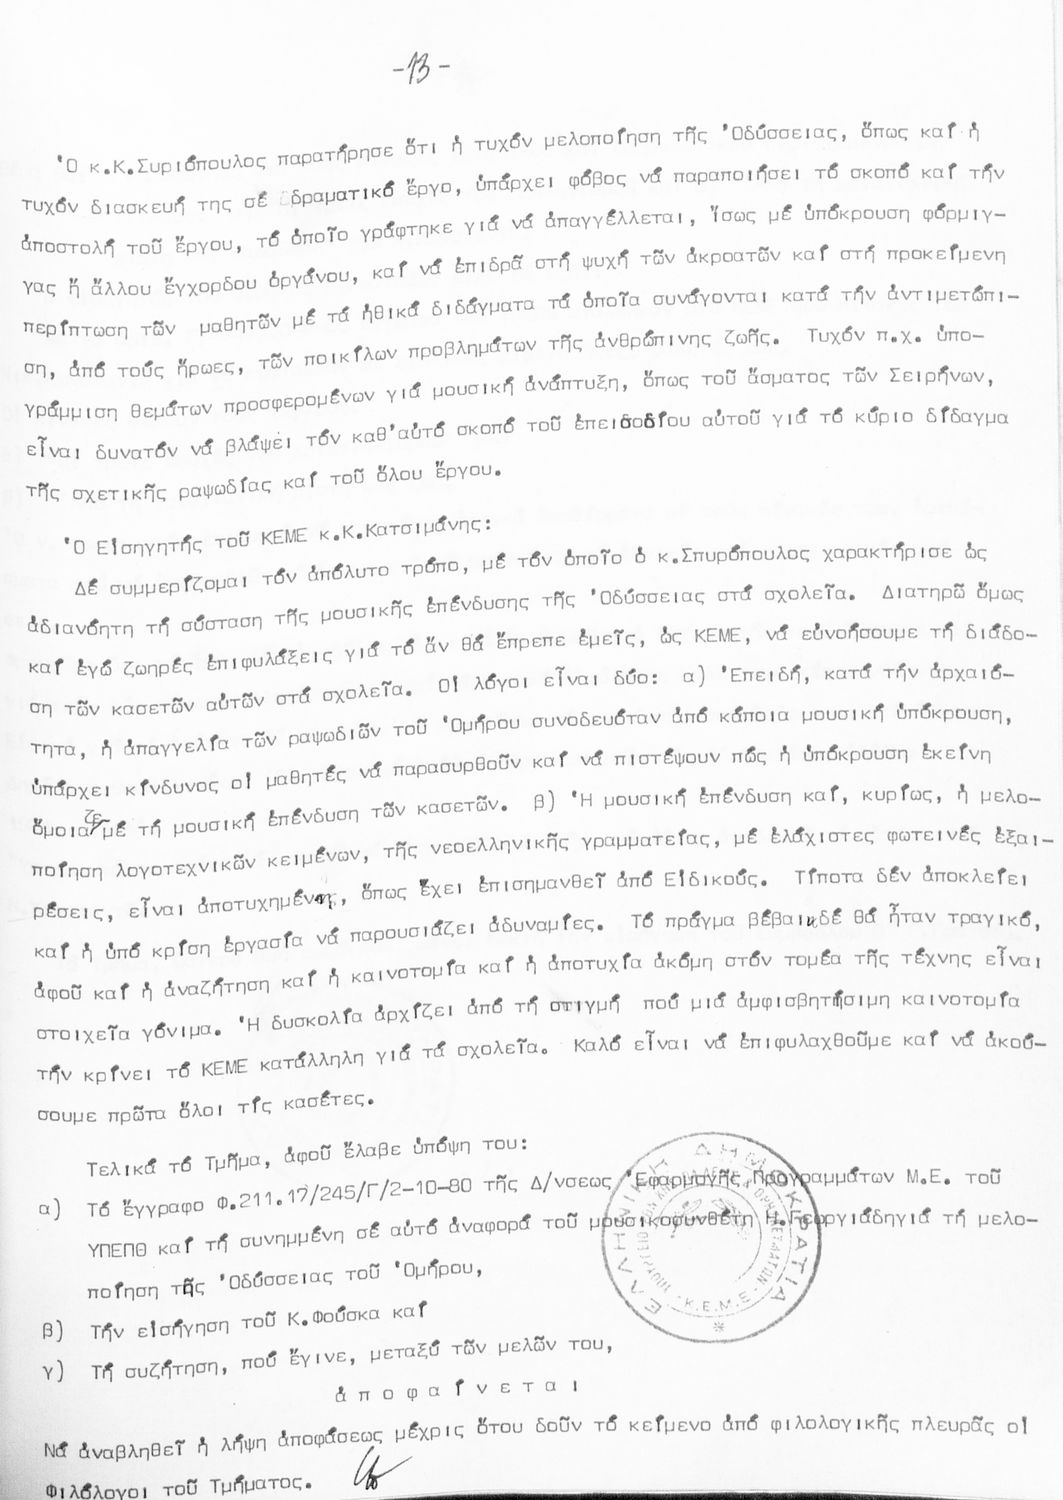 -13-
Ὁ κ.Κ.Συριόπουλος παρατήρησε ὅτι ἡ τυχόν μελοποίηση τῆς Ὀδύσσειας, ὅπως καί ἡ
τυχόν διασκευή της σέ δραματικό ἔργο, ὑπάρχει φόβος νά παραποιήσει τό σκοπό καί τήν
ἀποστολή τοῦ ἔργου, τό ὁποῖο γράφτηκε γιά νά ἀπαγγέλλεται, ἴσως μέ ὑπόκρουση φόρμιγ-
γας ἤ ἄλλου ἔγχορδου ὀργάνου, καί νά ἐπιδρᾶ στή ψυχή τῶν ἀκροατῶν καί στή προκείμενη
περίπτωση τῶν μαθητῶν μέ τά ἠθικά διδάγματα τά ὁποῖα συνάγονται κατά τήν ἀντιμετώπι-
ση, ἀπό τούς ἥρωες, τῶν ποικίλων προβλημάτων τῆς ἀνθρώπινης ζωῆς. Τυχόν π.χ. ὑπο-
γράμμιση θεμάτων προσφερομένων γιά μουσική ἀνάπτυξη, ὅπως τοῦ ἄσματος τῶν Σειρήνων,
εἶναι δυνατόν νά βλάψει τόν καθ'αὑτό σκοπό τοῦ ἐπεισοδίου αὐτοῦ γιά τό κύριο δίδαγμα
τῆς σχετικῆς ραψωδίας καί τοῦ ὅλου ἔργου.
Ὁ Εἰσηγητής τοῦ ΚΕΜΕ κ.Κ.Κατσιμάνης:
Δέ συμμερίζομαι τόν ἀπόλυτο τρόπο, μέ τόν ὁποῖο ὁ κ.Σπυρόπουλος χαρακτήρισε ὡς
ἀδιανόητη τή σύσταση τῆς μουσικῆς ἐπένδυσης τῆς Ὀδύσσειας στά σχολεῖα. Διατηρῶ ὅμως
καί ἐγώ ζωηρές ἐπιφυλάξεις γιά τό ἄν θά ἔπρεπε ἐμεῖς, ὡς ΚΕΜΕ, νά εὐνοήσουμε τή διάδο-
ση τῶν κασετῶν αὐτῶν στά σχολεῖα. Οἱ λόγοι εἶναι δύο: α) Ἐπειδή, κατά τήν ἀρχαιό-
τητα, ἡ ἀπαγγελία τῶν ραψωδιῶν τοῦ Ὁμήρου συνοδευόταν ἀπό κάποια μουσική ὑπόκρουση,
ὑπάρχει κίνδυνος οἱ μαθητές νά παρασυρθοῦν καί νά πιστέψουν πώς ἡ ὑπόκρουση ἐκείνη
ὅμοιαζε μέ τή μουσική ἐπένδυση τῶν κασετῶν. β) Ἡ μουσική ἐπένδυση καί, κυρίως, ἡ μελο-
ποίηση λογοτεχνικῶν κειμένων, τῆς νεοελληνικῆς γραμματείας, μέ ἐλάχιστες φωτεινές ἐξαι-
ρέσεις, εἶναι ἀποτυχημένη, ὅπως ἔχει ἐπισημανθεῖ ἀπό Εἰδικούς. Τίποτα δέν ἀποκλείει
καί ἡ ὑπό κρίση ἐργασία νά παρουσιάζει ἀδυναμίες. Τό πράγμα βέβαια δέ θά ἦταν τραγικό,
ἀφοῦ καί ἡ ἀναζήτηση καί ἡ καινοτομία καί ἡ ἀποτυχία ἀκόμη στόν τομέα τῆς τέχνης εἶναι
στοιχεῖα γόνιμα. Ἡ δυσκολία ἀρχίζει ἀπό τή στιγμή πού μιά ἀμφισβητήσιμη καινοτομία
τήν κρίνει τό ΚΕΜΕ κατάλληλη γιά τά σχολεῖα. Καλό εἶναι νά ἐπιφυλαχθοῦμε καί νά ἀκού-
σουμε πρῶτα ὅλοι τίς κασέτες.
Τελικά τό Τμῆμα, ἀφοῦ ἔλαβε ὑπόψη του:
α) Τό ἔγγραφο Φ.211.17/245/Γ/2-10-80 τῆς Δ/νσεως Ἐφαρμογῆς Προγραμμάτων Μ.Ε. τοῦ
ΥΠΕΠΘ καί τή συνημμένη σέ αὐτό ἀναφορά τοῦ μουσικοσυνθέτη Η.Γεωργιάδηγιά τή μελο-
ποίηση τῆς Ὀδύσσειας τοῦ Ὁμήρου,
β) Τήν εἰσήγηση τοῦ Κ.Φούσκα καί
γ) Τή συζήτηση, πού ἔγινε, μεταξύ τῶν μελῶν του,
ἀ π ο φ α ί ν ε τ α ι
Νά ἀναβληθεῖ ἡ λήψη ἀποφάσεως μέχρις ὅτου δοῦν τό κείμενο ἀπό φιλολογικῆς πλευρᾶς οἱ
Φιλόλογοι τοῦ Τμήματος.
ΕΛΛΗΝΙΚΗ ΔΗΜΟΚΡΑΤΙΑ
Κ.Ε.Μ.Ε.